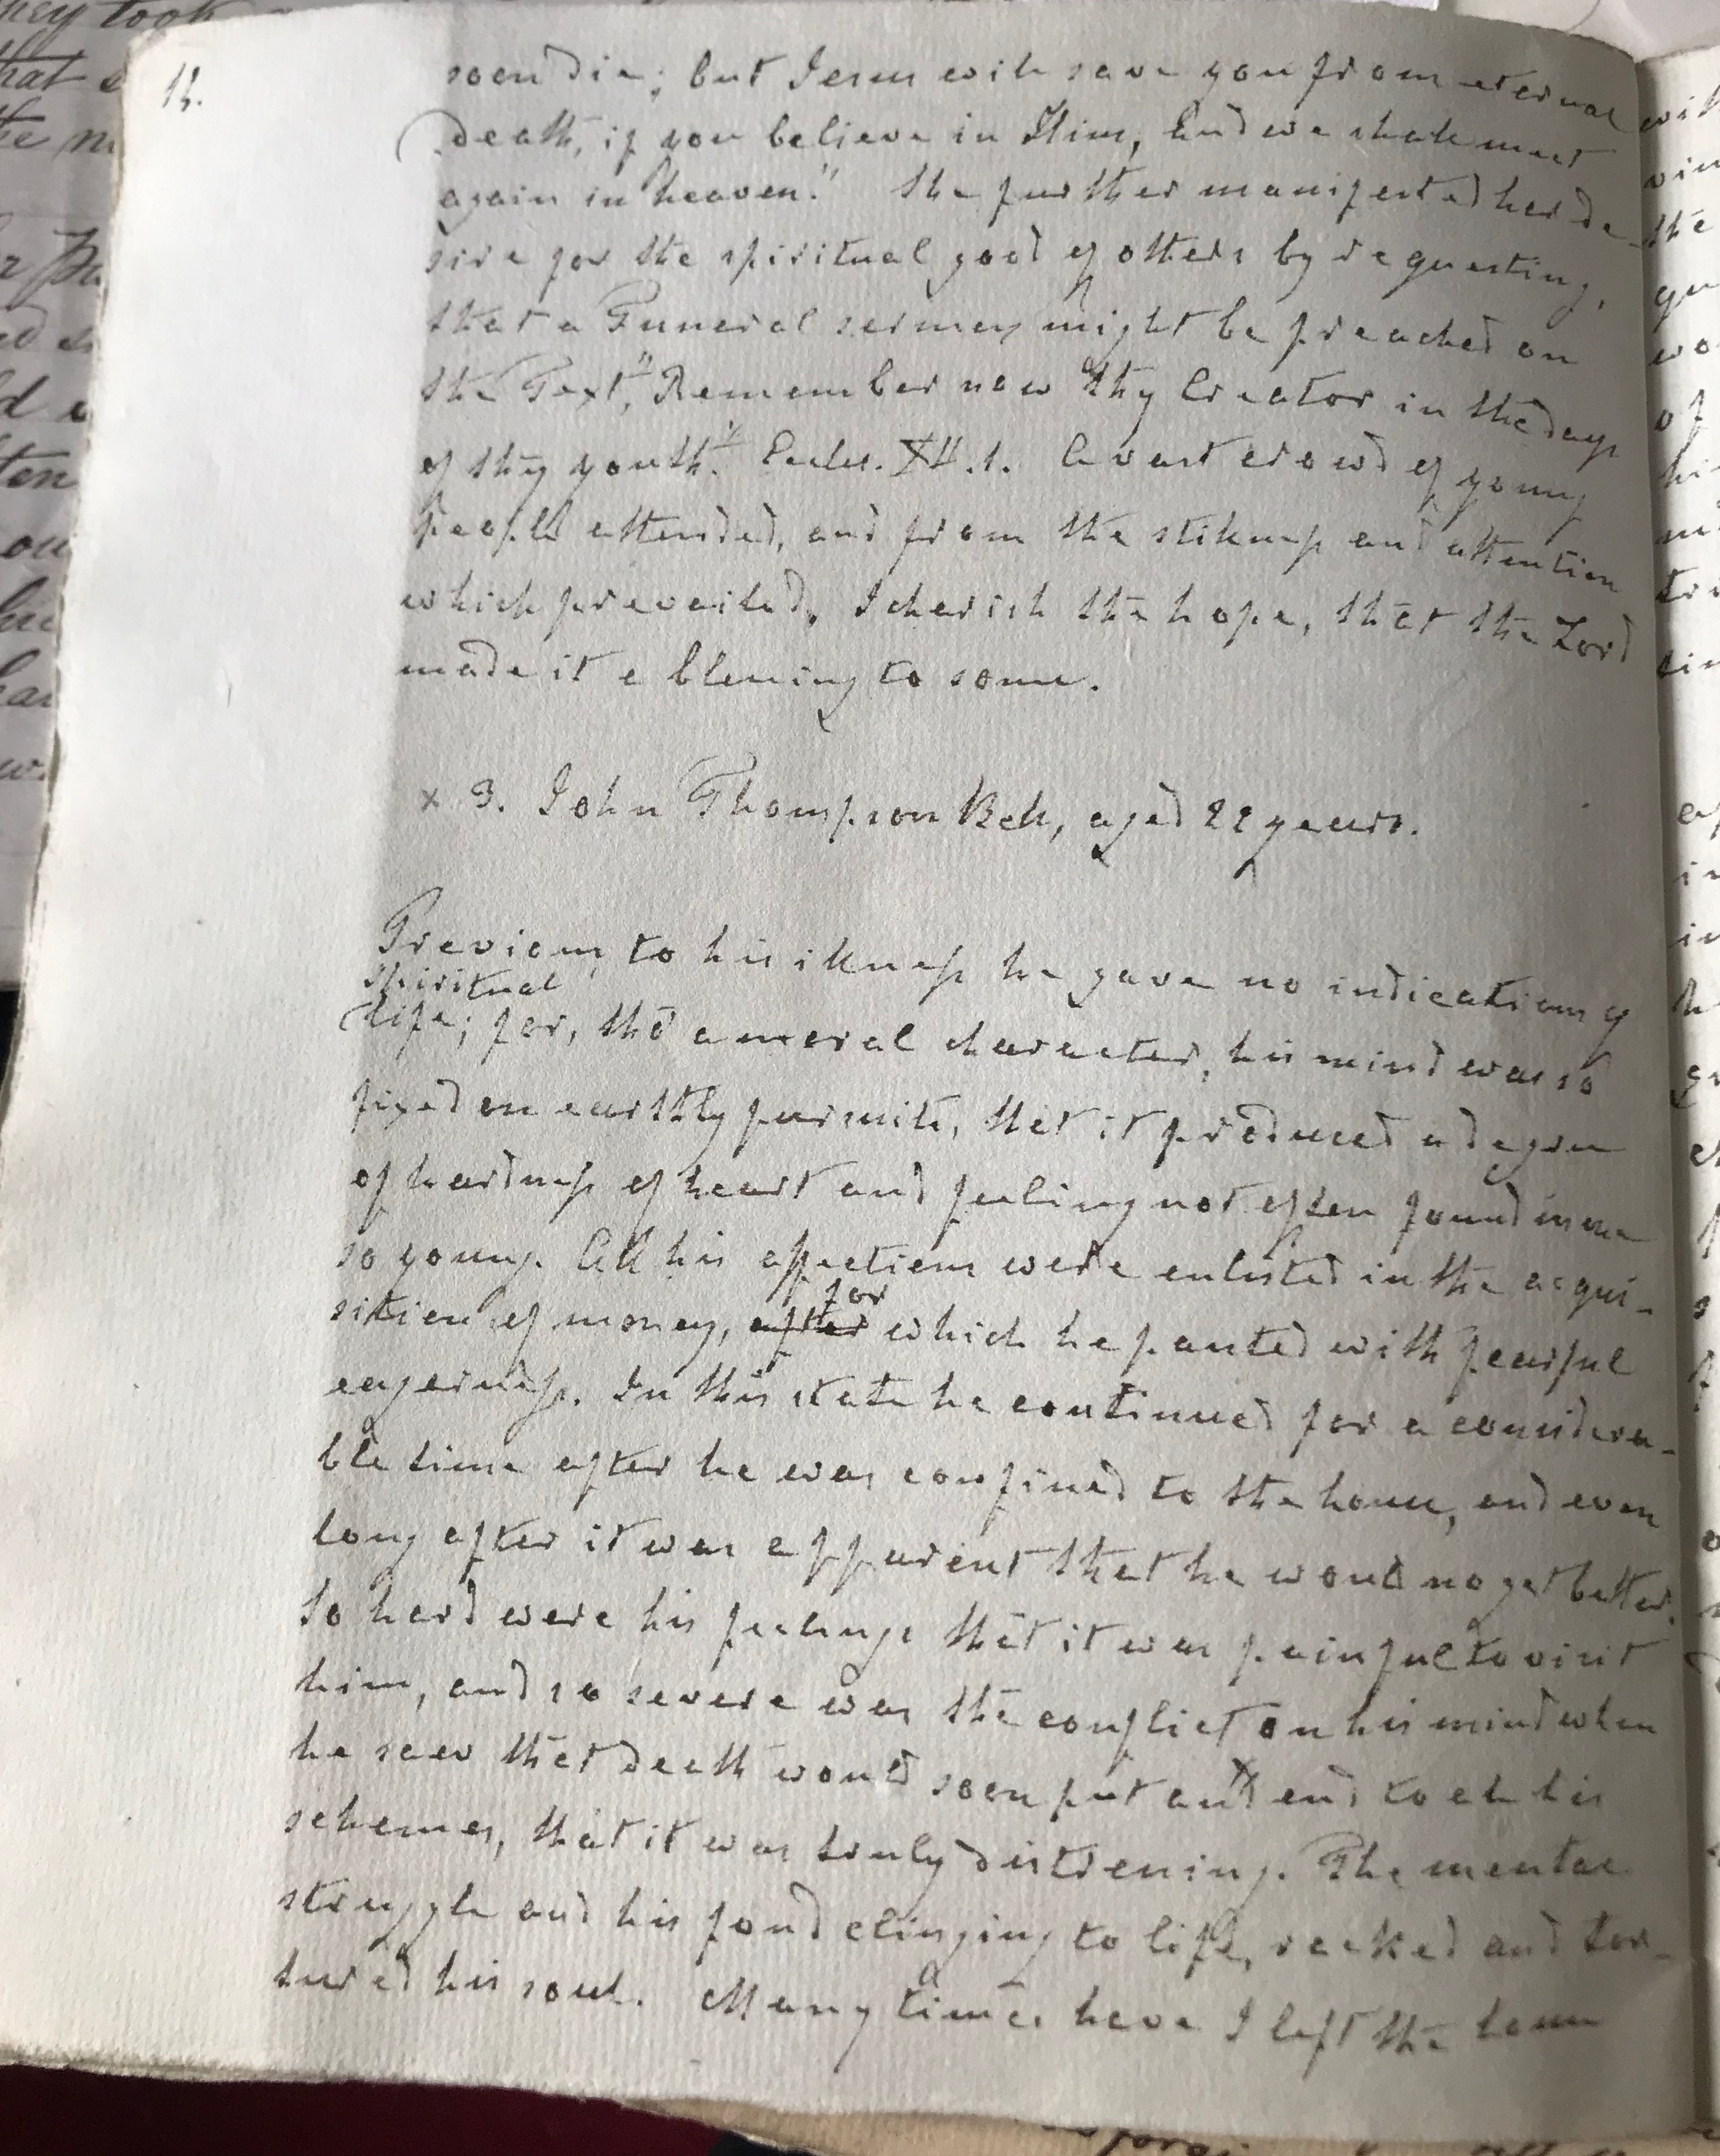 soon die; but Jesus will save you from eternal
death, if you believe in Him, And we shall meet
again in heaven." She further manifested her de-
sire for the spiritual good of others by requesting,
that a Funeral sermon might be preached on
the Text, "Remember now thy Creator in the days
of thy youth." Eccles. XII. 1. A vast crowd of young
people attended, and from the stillness and attention
which prevailed, I cherish the hope, that the Lord
made it a blessing to some.
x 3. John Thompson Bell, aged 22 years.
Previous to his illness he gave no indications of
spiritual
life; for, tho' a moral character, his mind was so
fixed on earthly pursuits, that it produced a degree
of hardness of heart and feeling not often found in one
so young. All his affections were enlisted in the acqui-
for
sition of money, after which he panted with fearful
eagerness. In this state he continued for a considera-
ble time after he was confined to the house, and even
long after it was apparent that he would no get better.
So hard were his feelings that it was painful to visit
him, and so severe was the conflict on his mind when
he saw that death would soon put an end to all his
schemes, that it was truly distressing. The mental
struggle and his fond clinging to life, racked and tor-
tured his soul. Many a time have I left the house